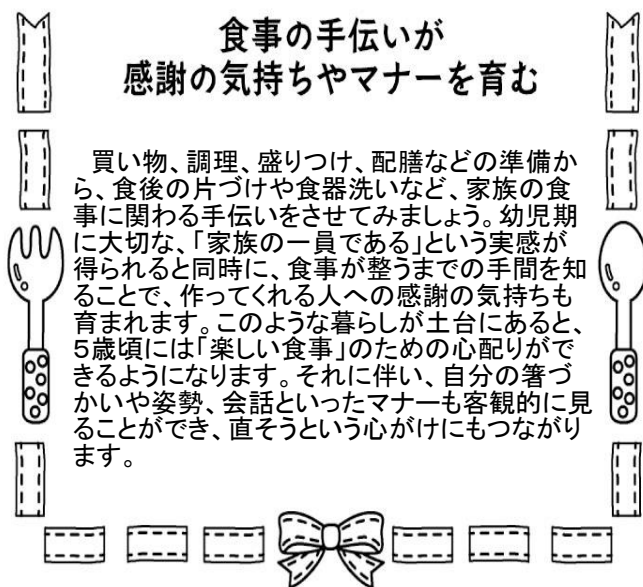 食事の手伝いが
感謝の気持ちやマナーを育む
　買い物、調理、盛りつけ、配膳などの準備か
ら、食後の片づけや食器洗いなど、家族の食
事に関わる手伝いをさせてみましょう。幼児期
に大切な、「家族の一員である」という実感が
得られると同時に、食事が整うまでの手間を知
ることで、作ってくれる人への感謝の気持ちも
育まれます。このような暮らしが土台にあると、
5歳頃には「楽しい食事」のための心配りがで
きるようになります。それに伴い、自分の箸づ
かいや姿勢、会話といったマナーも客観的に見
ることができ、直そうという心がけにもつながり
ます。